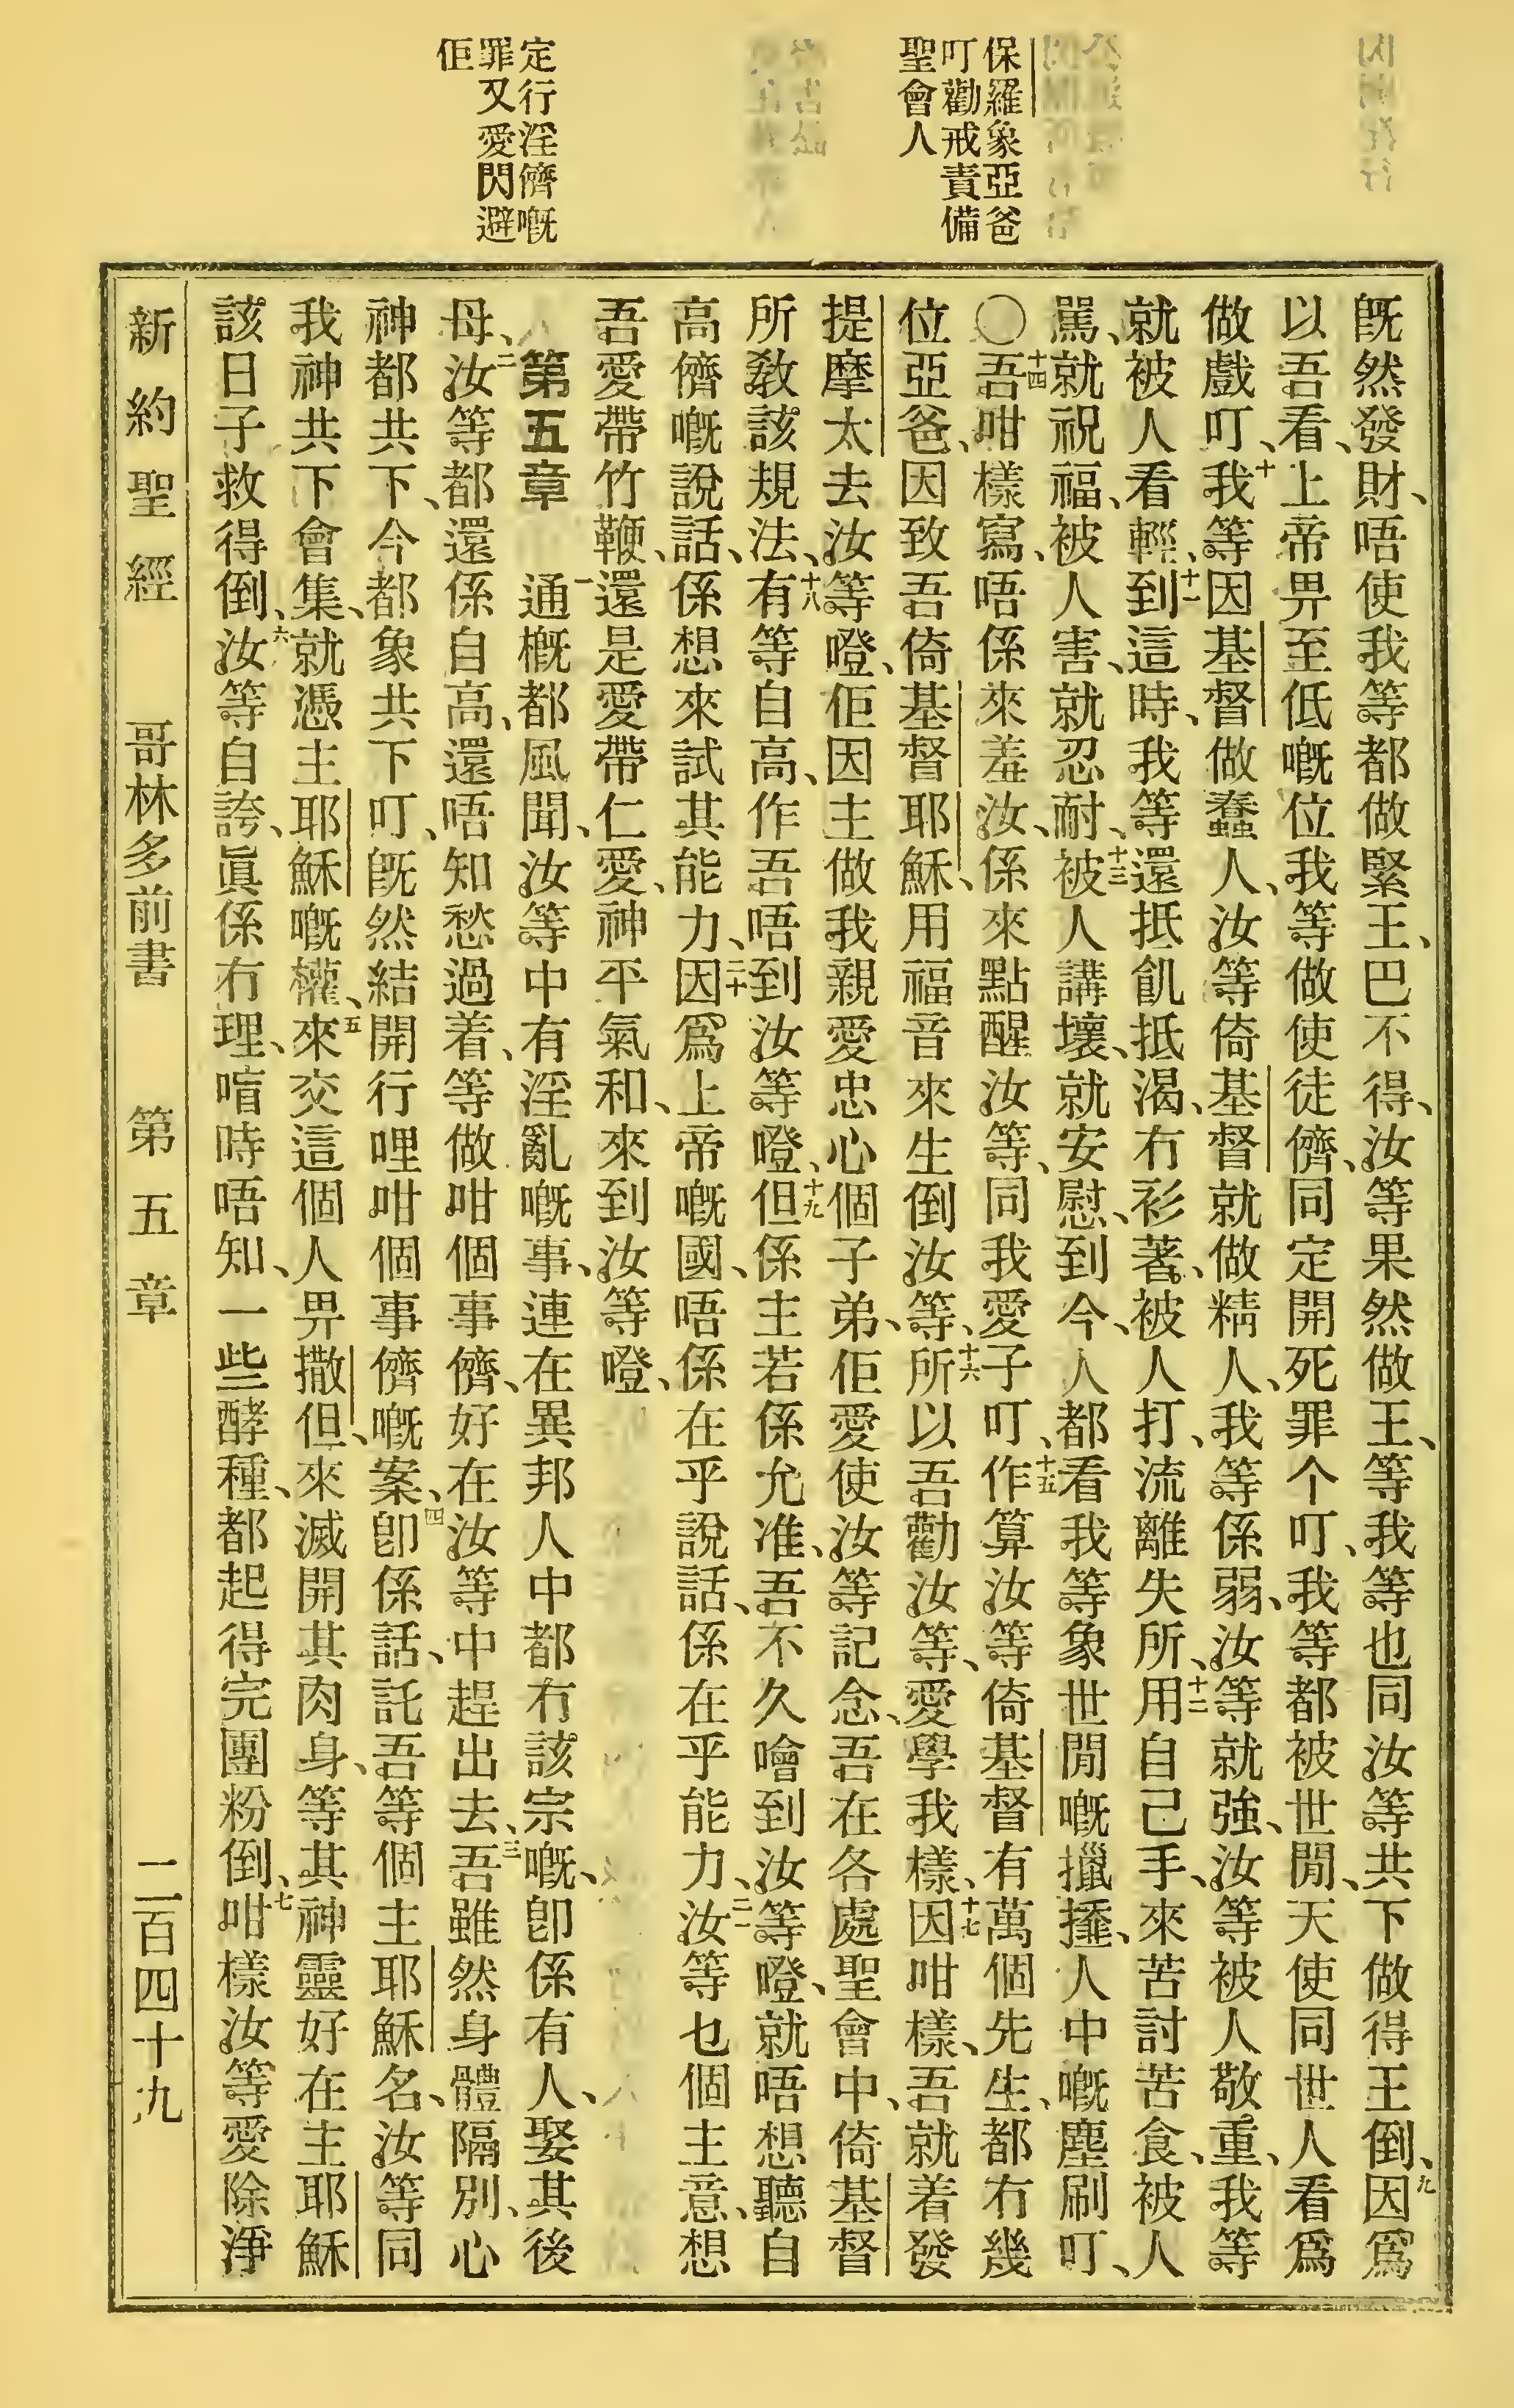 保羅象亞爸
叮勸戒責備
聖會人
定行淫儕嘅
罪又愛閃避
佢
既然發財、唔使我等都做緊王、巴不得、汝等果然做王、等我等也同汝等共下做得王倒、九因爲
以吾看、上帝畀至低嘅位我等做使徒儕、同定開死罪个叮、我等都被世閒、天使同世人看爲
做戲叮、十我等因基督做蠢人、汝等倚基督就做精人、我等係弱、汝等就強、汝等被人敬重、我等
就被人看輕、十一到這時、我等還抵飢抵渴、冇衫著、被人打、流離失所、十二用自己手、來苦討苦食、被人
罵、就祝福、被人害、就忍耐、十三被人講壞、就安慰、到今、人都看我等象世閒嘅擸𢶍、人中嘅塵刷叮、
〇十四吾咁樣寫、唔係來羞汝、係來點醒汝等、同我愛子叮、十五作算汝等倚基督有萬個先生、都冇幾
位亞爸、因致吾倚基督耶穌、用福音來生倒汝等、十六所以吾勸汝等、愛學我樣、十七因咁樣、吾就着發
提摩太去汝等嶝、佢因主做我親愛忠心個子弟、佢愛使汝等記念、吾在各處聖會中、倚基督
所教該規法、十八有等自高、作吾唔到汝等嶝、十九但係主若係允准、吾不久噲到汝等嶝、就唔想聽自
高儕嘅說話、係想來試其能力、二十因爲上帝嘅國、唔係在乎說話、係在乎能力、二一汝等乜個主意、想
吾愛帶竹鞭、還是愛帶仁愛、神平氣和、來到汝等嶝、
第五章　一通概都風聞、汝等中有淫亂嘅事、連在異邦人中都冇該宗嘅、卽係有人、娶其後
母、二汝等都還係自高、還唔知愁過着、等做咁個事儕、好在汝等中趕出去、三吾雖然身體隔別、心
神都共下、今都象共下叮、旣然結開行哩咁個事儕嘅案、四卽係話、託吾等個主耶穌名、汝等同
我神共下會集、就憑主耶穌嘅權、五來交這個人畀撒但、來滅開其肉身、等其神靈好在主耶穌
該日子救得倒、六汝等自誇、眞係冇理、唷時唔知、一些酵種、都起得完團粉倒、七咁樣汝等愛除淨
新約聖經　哥林多前書　第五章　二百四十九